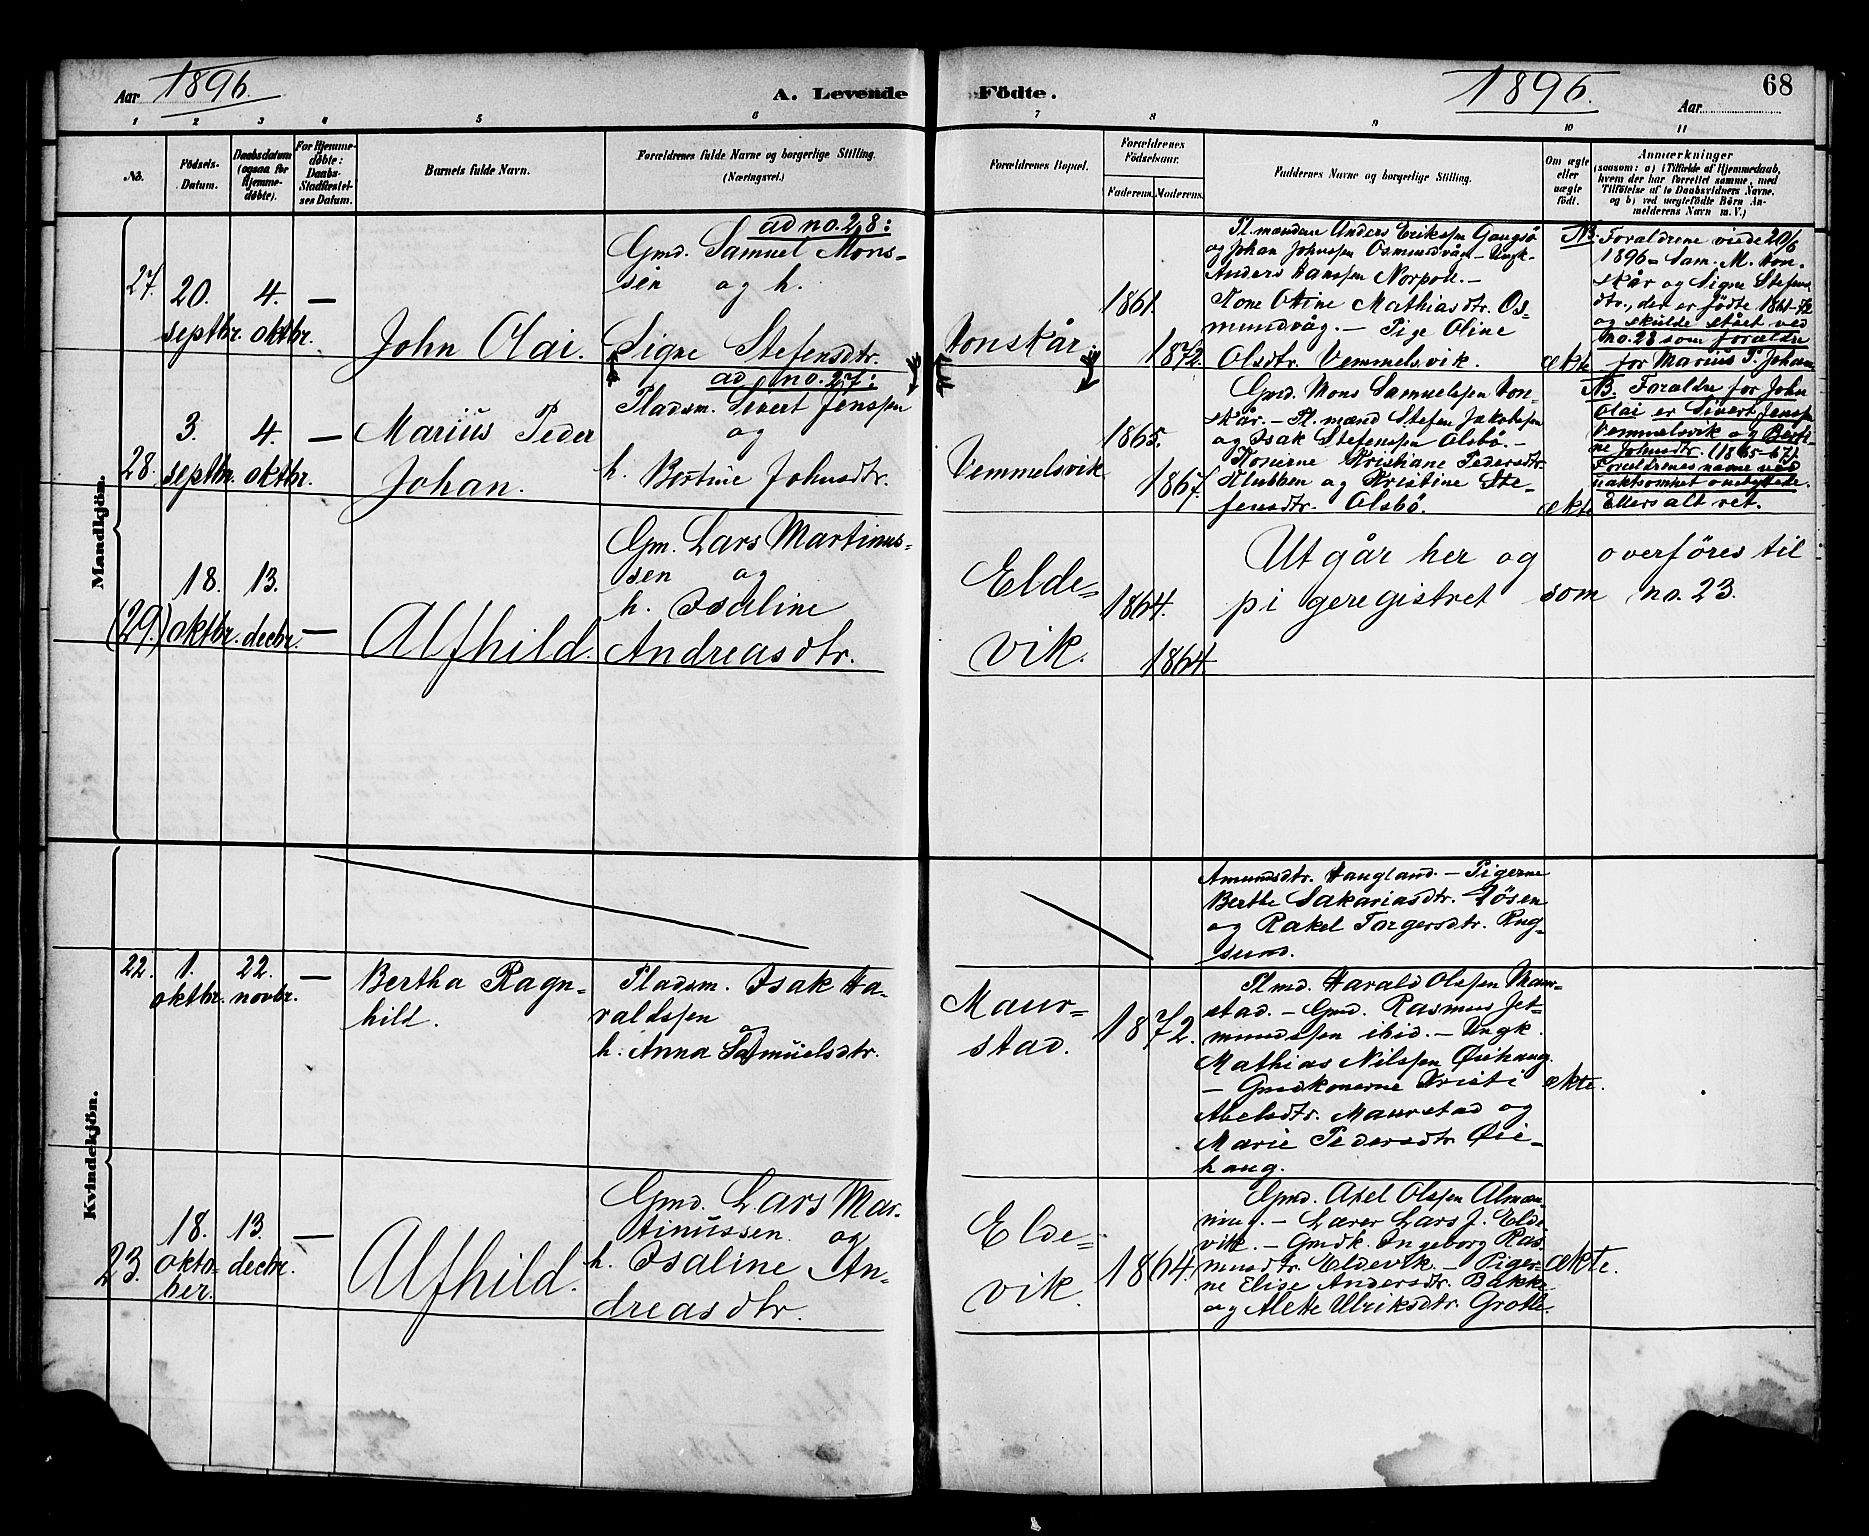 Aar 1896. A. Levende Födte. 1896. Aar 68
1 2 3 4 5 6 7 8 9 10 11
No.
Födsels-Datum.
Daabsdatum (ogsaa for Hjemme-døbte).
For Hjemme-døbte: Daabs-Stadfæstel-ses Datum.
Barnets fulde Navn.
Forældrenes fulde Navne og borgerlige Stilling. (Næringsvei.)
Forældrenes Bopæl.
Forældrenes Födselsaar.
Faderens. Moderens.
Faddernes Navne og borgerlige Stilling.
Om ægte eller uægte født.
Anmærkninger
(saasom: a) i Tilfælde af Hjemmedaab,
hvem der har forrettet samme, med
Tilføielse af to Daabsvidners Navne,
og b) ved uægtefödte Börn An-
melderens Navn m. V.)
Mandkjön.
27.
20. septbr.
4. oktbr.
—
John Olai.
ad no. 28:
Gmd. Samuel Mons-
sen og h.
Signe Stefensdtr.
Vonskår.
1861.
1872.
Pl.mændene Anders Eriksen Gangsö
og Johan Johnsen Osmundvåg - Ungk.
Anders Hanssen Norpoll. -
Kone Oline Mathiasdtr. Os-
mundvåg. - Pige Oline
Olsdtr. Vemmelsvik.
ækte
NB. Forældrene viede 20/6
1896 = Sam. M. Von-
skår og Signe Stefens-
dtr., der er födte 1861-72
og skulde stået ved
no. 28 som forældre
for Marius P. Johan
28.
3. septbr.
4. oktbr.
—
Marius Peder
Johan.
ad no. 27:
Pladsm. Sivert Jenssen
og
h. Bertine Johnsdtr.
Vemmelsvik
1865.
1867.
Gmd. Mons Samuelsen Von-
skår. - Pl.mænd Stefen Jakobsen
og Isak Stefensen Alsbö. -
Konerne Kristiane Pedersdtr.
Klubben og Kristine Ste-
fensdtr. Alsbö.
ækte
NB. Forældre for John
Olai er Sivert Jenssen
Vemmelsvik og Berti-
ne Johnsdtr. (1865-67).
Forældrenes navne ved
uaktsomhet ombyttede.
Ellers alt ret.
(29.)
18. oktbr.
13. decbr.
—
Alfhild.
Gm. Lars Martinus-
sen og
h. Isaline
Andreasdtr.
Elde-
vik.
1864.
1864
Utgår her og overföres til
pigeregistret som no. 23.
Kvindekjön.
Amundsdtr. Haugland. - Pigerne
Berthe Sakariasdtr. Løsen
og Rakel Torgersdtr. Rug-
sund.
22.
1. oktbr.
22. novbr.
—
Bertha Ragn-
hild.
Pladsm. Isak Ha-
raldssen
og
h. Anna Samuelsdtr.
Maur-
stad.
1872.
Plmd. Harald Olssen Maur-
stad. - Gmd. Rasmus Jet-
mundssen ibid. - Ungk.
Mathias Nilssen Øiehaug.
- Gmdkonerne Kristi
Abelsdtr. Maurstad og
Marie Pedersdtr. Øie-
haug.
ækte.
23.
18. okto-
ber.
13. decbr.
—
Alfhild.
Gmd. Lars Mar-
tinussen og
h. Isaline An-
dreasdtr.
Elde-
vik.
1864.
Gmd. Axel Olssen Almen-
ning. - Lærer Lars J. Elde-
vik. - Gmdk. Ingeborg Ras-
musdtr. Eldevik. - Piger-
ne Elise Andersdtr. Bakke
og Alette Ulriksdtr. Grotle.
ækte.